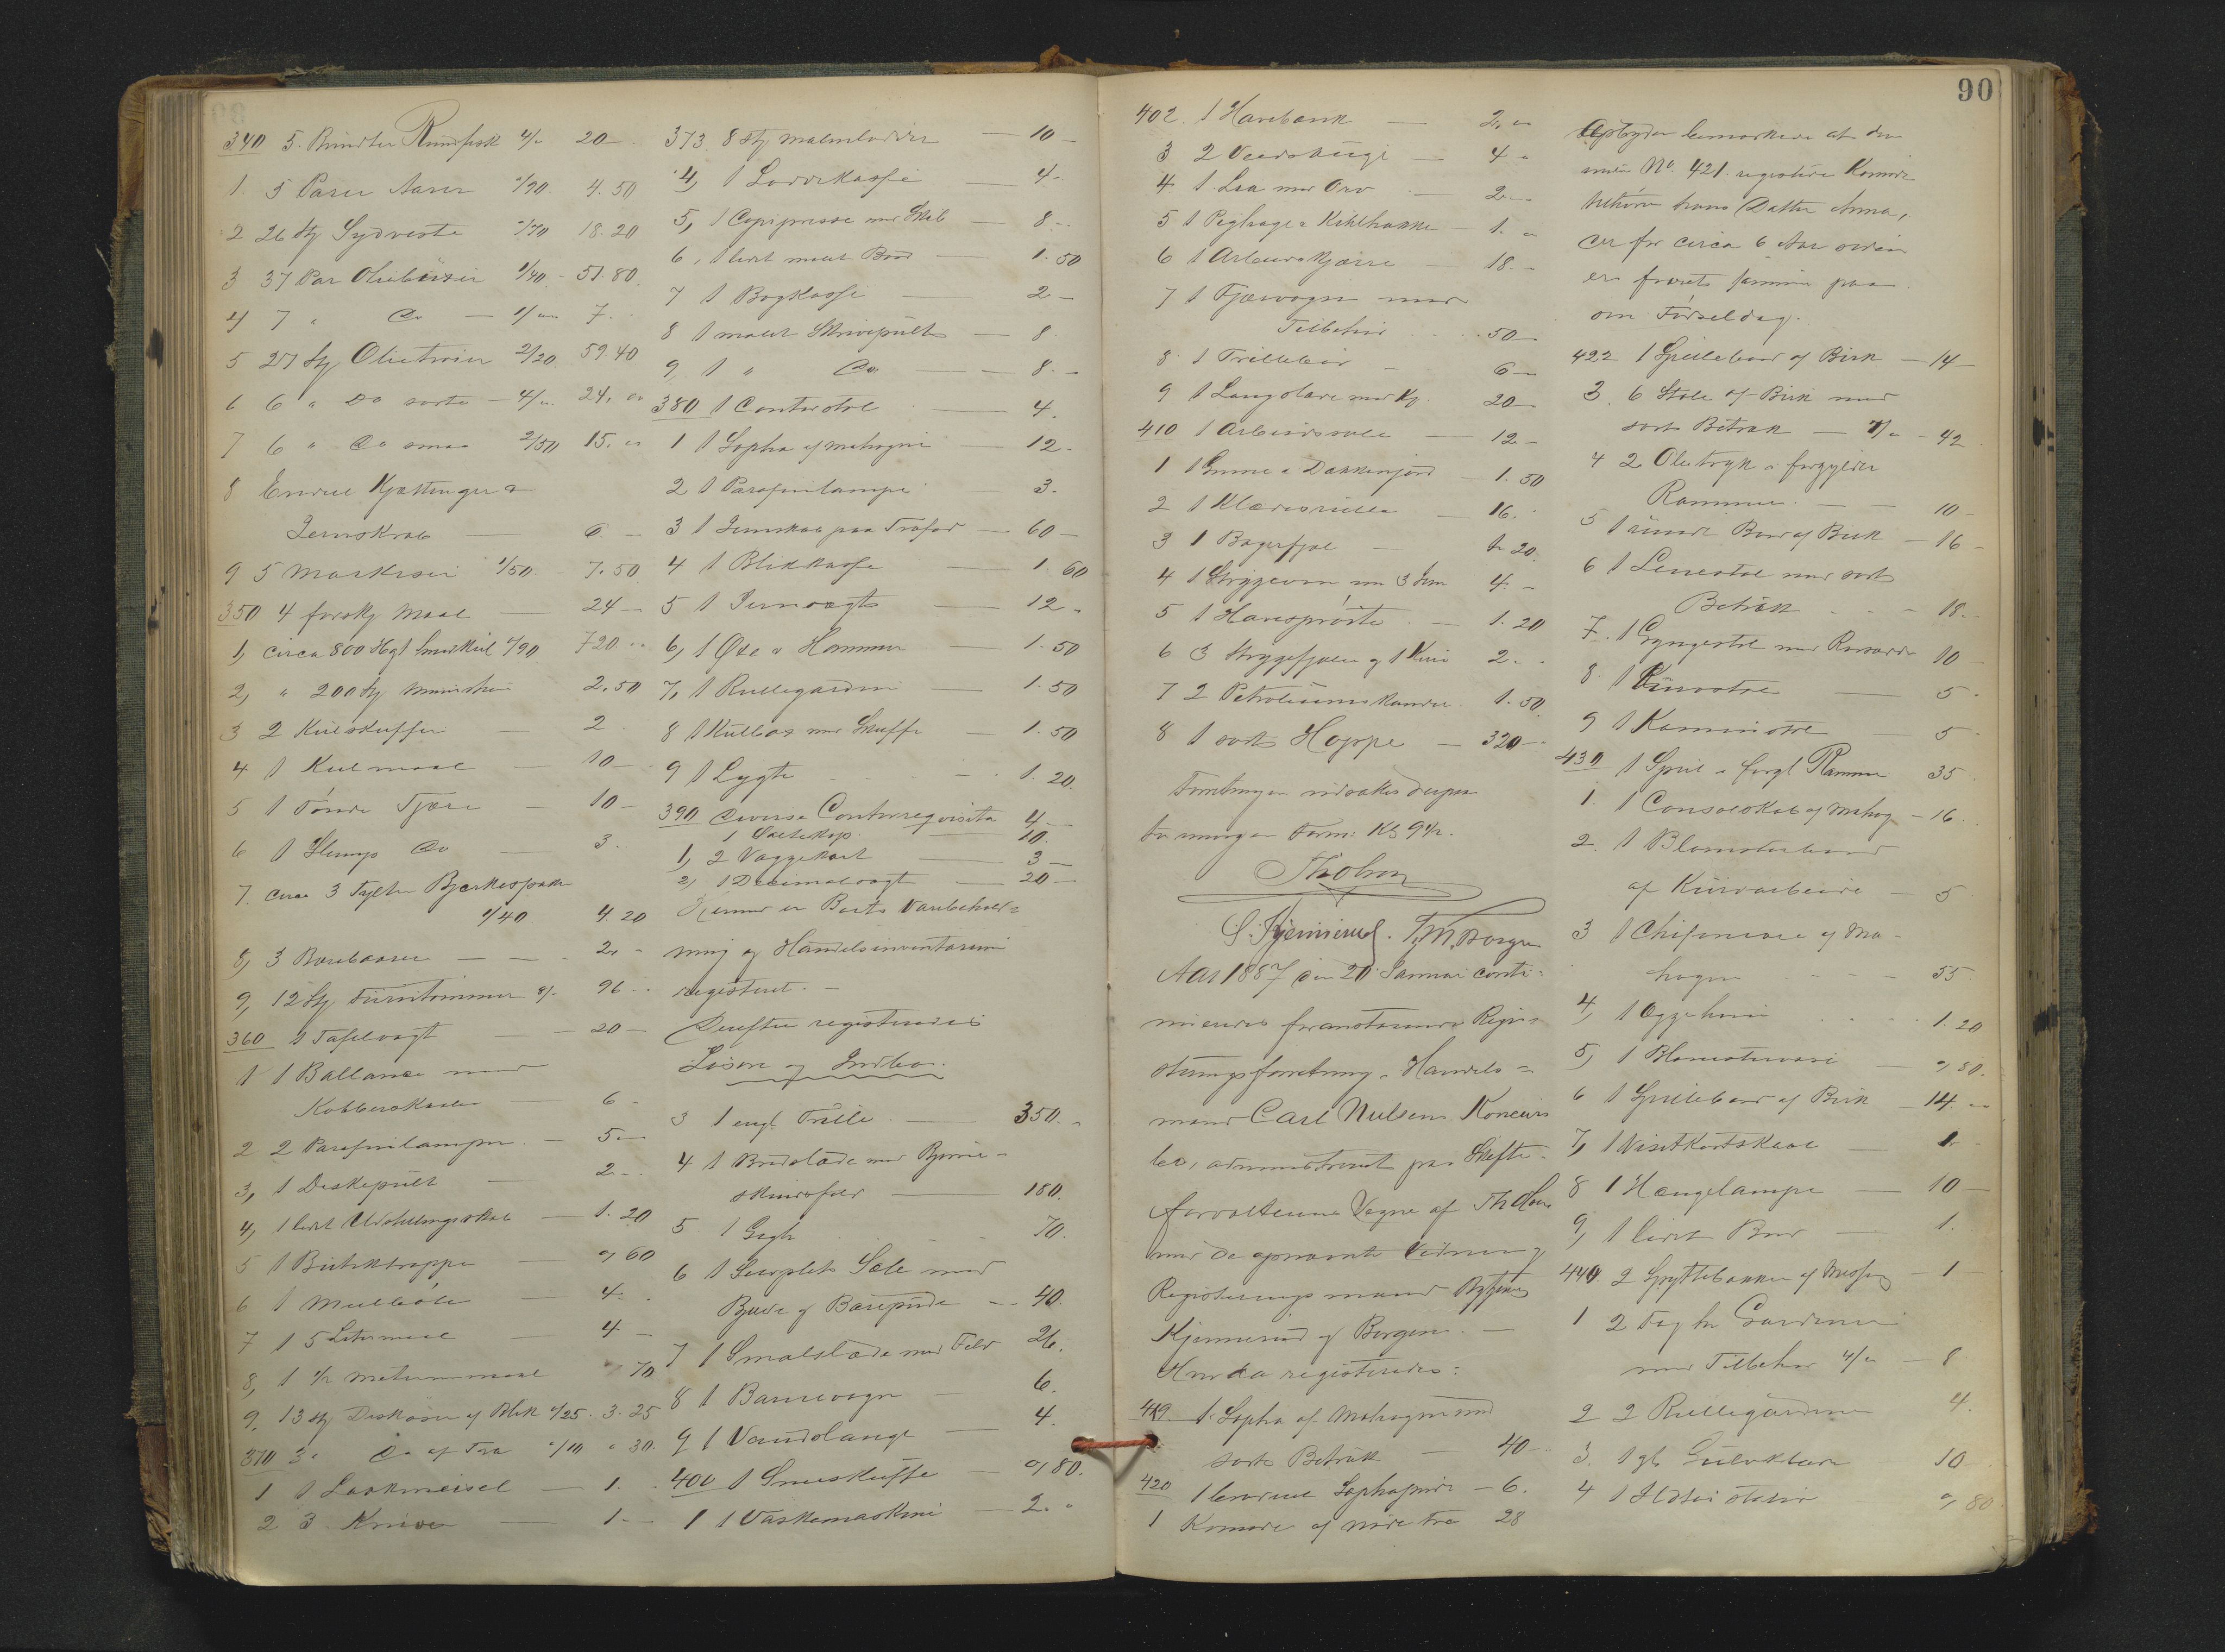 340 5. Bundter Rundfisk 4/" 20 -
1. 5 Parer Aarer "/90 4.50
2 26 Stk Sydveste "/70 18.20
3 37 Par Oliebuxer 1/40 - 51.80.
4 7 " Do — 1/" 7.
5 27 Stk Olietrøier 2/20 59.40
6 6 " Do sorte — 4/" 24. "
7 6 " Do smaa 2/50 15. "
8 Endeel Kjættinger &
Jernskrab — 6. —
9 5 1/50 - 7.50
350 4 forskj Maal — 24 —
1, circa 800 Hgl Smedkul "/90 720 ..
2, " 200 Stk 2.50
3 2 Kulskuffer — 2.
4 1 Kulmaal — 10 —
5 1 Tønde Tjære — 10 —
6 1 Do — 3.
7. circa 3 Tylter
"/40 4.20
8, 3 Børebaarer — 2. -
9, 12 Stk 8/- 96 -
360 1 Tafelvægt — 20 —
1 1 Ballance med
Kobberskaaler — 6 -
2 2 Parafinlamper — 5. —
3, 1 Diskepult — 2 -
4, 1 lidet Udstillingsskab — 1.20
5 1 Butiktrappe — ", 60
6 1 — 4.
7 1 5 Litermaal — 4 —
8, 1 1/2 70
9. 13 stk af Blik "/25. 3.25
370 3 " Do af Træ "/10 " 30.
1 1 Lakmeisel — 1.
2 3 Knive — 1. —
373. 8 stk — 10 —
4, 1 Loddekasse 4 -
5, 1 Copipresse med Skab — 8 -
6, 1 lidet malt Bord — 1.50
7 1 Bogkasse — 2 —
8 1 malet Skrivepult — 8
9 1 " Do — 8. -
380 1 Contorstol — 4.
1 1 Sopha af mahogni — 12 -
2 1 Parafinlampe — 3.
3 1 Jernskab paa Træfod — 60 —
4 1 Blikkasse — 1.60
5 1 Jernvægt — 12 -
6, 1 Øxe & Hammer — 1.50
7, 1 Rullegardin — 1.50
8 1 Kulbox med Skuffe — 1.50
9 1 Lygte — 1.20.
390 Diverse Contorreqvisita 4 —
1 10.
1, 2 Væggekart — 3 —
2, 1 Decimalvægt — 20 —
Hermed er Boets Varebehold=
ning og Handelsinventarium
registeret. —
Derefter registreredes
Løsøre og Indbo.
3 1 engl Trille — 350. -
4 1 Bredslæde med Bjørne-
skindsfeld — 180.
5 1 Gigh — 70.
6 1 Sæle med
og — 40.
7 1 Smalslæde med Feld 26.
8 1 Barnevogn — 6.
9 1 Vandslange — 4.
400 1 Sneeskuffe — ", 80.
1 1 Vaskemaskine — 2. "
90
402. 1 Havebænk — 2. "
3 2 — 4 "
4. 1 Lea med Orv — 2 —
5 1 & — 1. "
6 1 Arbeidskjærre — 18. —
7 1 Fjærvogn med
Tilbehør 50 —
8 1 Trillebør — 6 —
9 1 Langslæde med 20 —
410 1 Arbeidssæle — 12 —
1 1 & — 1.50
2 1 Klæderulle — 16.
3 1 Bagerfjæl — 1.20
4 1 Strygeovn med 3 Jern 4. -
5 1 Havesprøite — 1.20
6 3 Strygefjæler og 1 2. -
7 2 Petroleumskander. 1.50.
8 1 sort Hoppe — 320 —
Forretningen udsættes derpaa
til imorgen Form: Kl 9 1/2.
Th Olsen
S. Kjennerud. T. M. Borgen
Aar 1887 den 20 Januar conti=
nueredes foranstaaende Regi=
streringsforretning i Handels=
mand Carl Nielsens Konkurs
bo, administreret paa Skifte-
forvalterens Vegne af Th Olsen
med de opnævnte Vidner og
Registeringsmænd
Kjennerud og Borgen. —
Hvorda registeredes:
419 1. Sopha af Mahogni med
sort Betræk — 40 -
420 1 broderet Sophapude — 6.
1 Komode af Træ 28
bemærkede at den
under No. 421 registrerede Komode
tilhører hans Datter Anna,
der for circa 6 Aar siden
er foræret samme paa
sin Føselsdag.
422 1 Spillebord af Birk — 14 —
3. 6 Stole af Birk med
sort Betræk — 7/" - 42
4 2 Olietryk i forgyldte
Rammer — 10 —
5 1 rundt Bord af Birk — 16 —
6 1 Lænestol med sort
Betræk — 18. —
7. 1 Gyngestol med 10 —
8. 1 Kurvstol — 5 -
9 1 Kaminstol — 5 -
430 1 Speil i forgl Ramme 35
1. 1 Consolskab af Mahog — 16
2. 1 Blomsterbord
af Kurvarbeide — 5
3 1 Chifoniere af Ma-
hogni 55
4, 1 1.20
5, 1 Blomstervase — ", 80.
6 1 Spillebord af Birk — 14. —
7, 1 Visitkortskaal — 1. -
8 1 Hængelampe — 10 —
9, 1 lidet Bord — 1.
440. 2 Spyttebakker af Messing — 1 —
1 2 Fag hv Gardiner
med Tilbehør 4/" — 8
2 2 Rullegardiner 4.
3. 1 gl Gulvklæde 10
4 1 ", 80